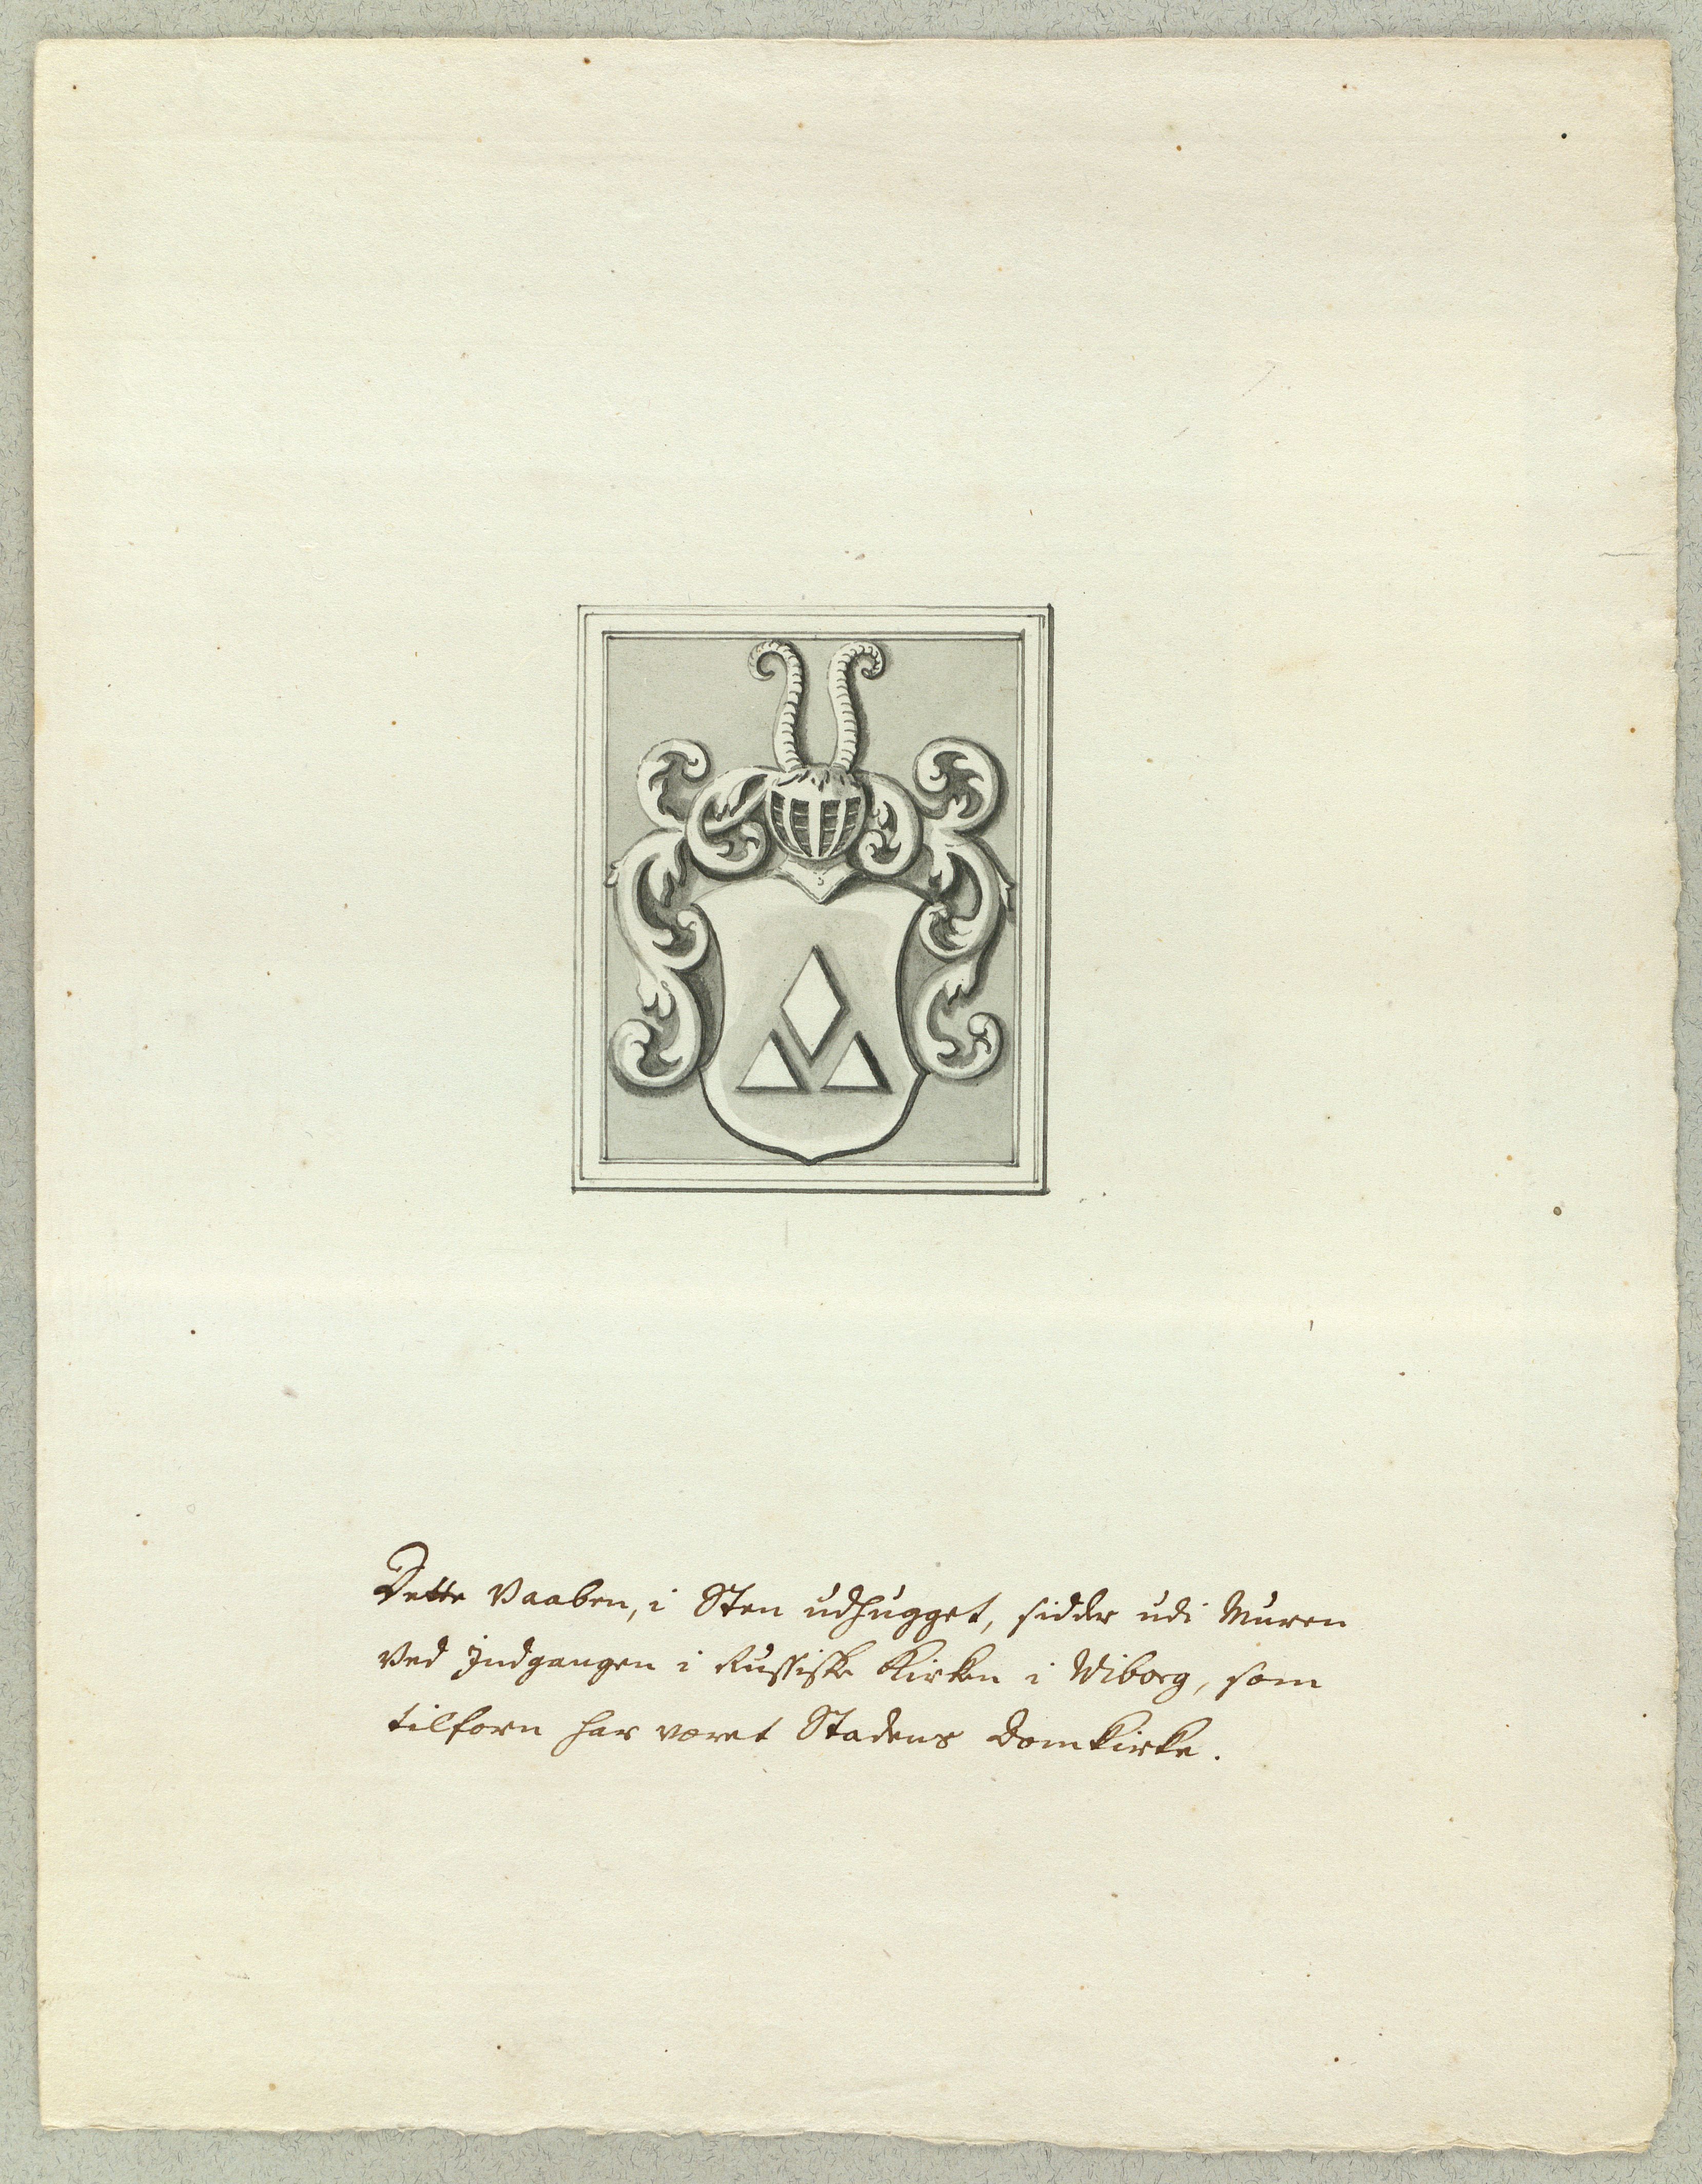 Dette Vaaben, i Sten udhugget, sidder udi Muren
Ved Indgangen i Russiske Kirken i Wiborg, som
tilforn har været Stadens Domkirke.